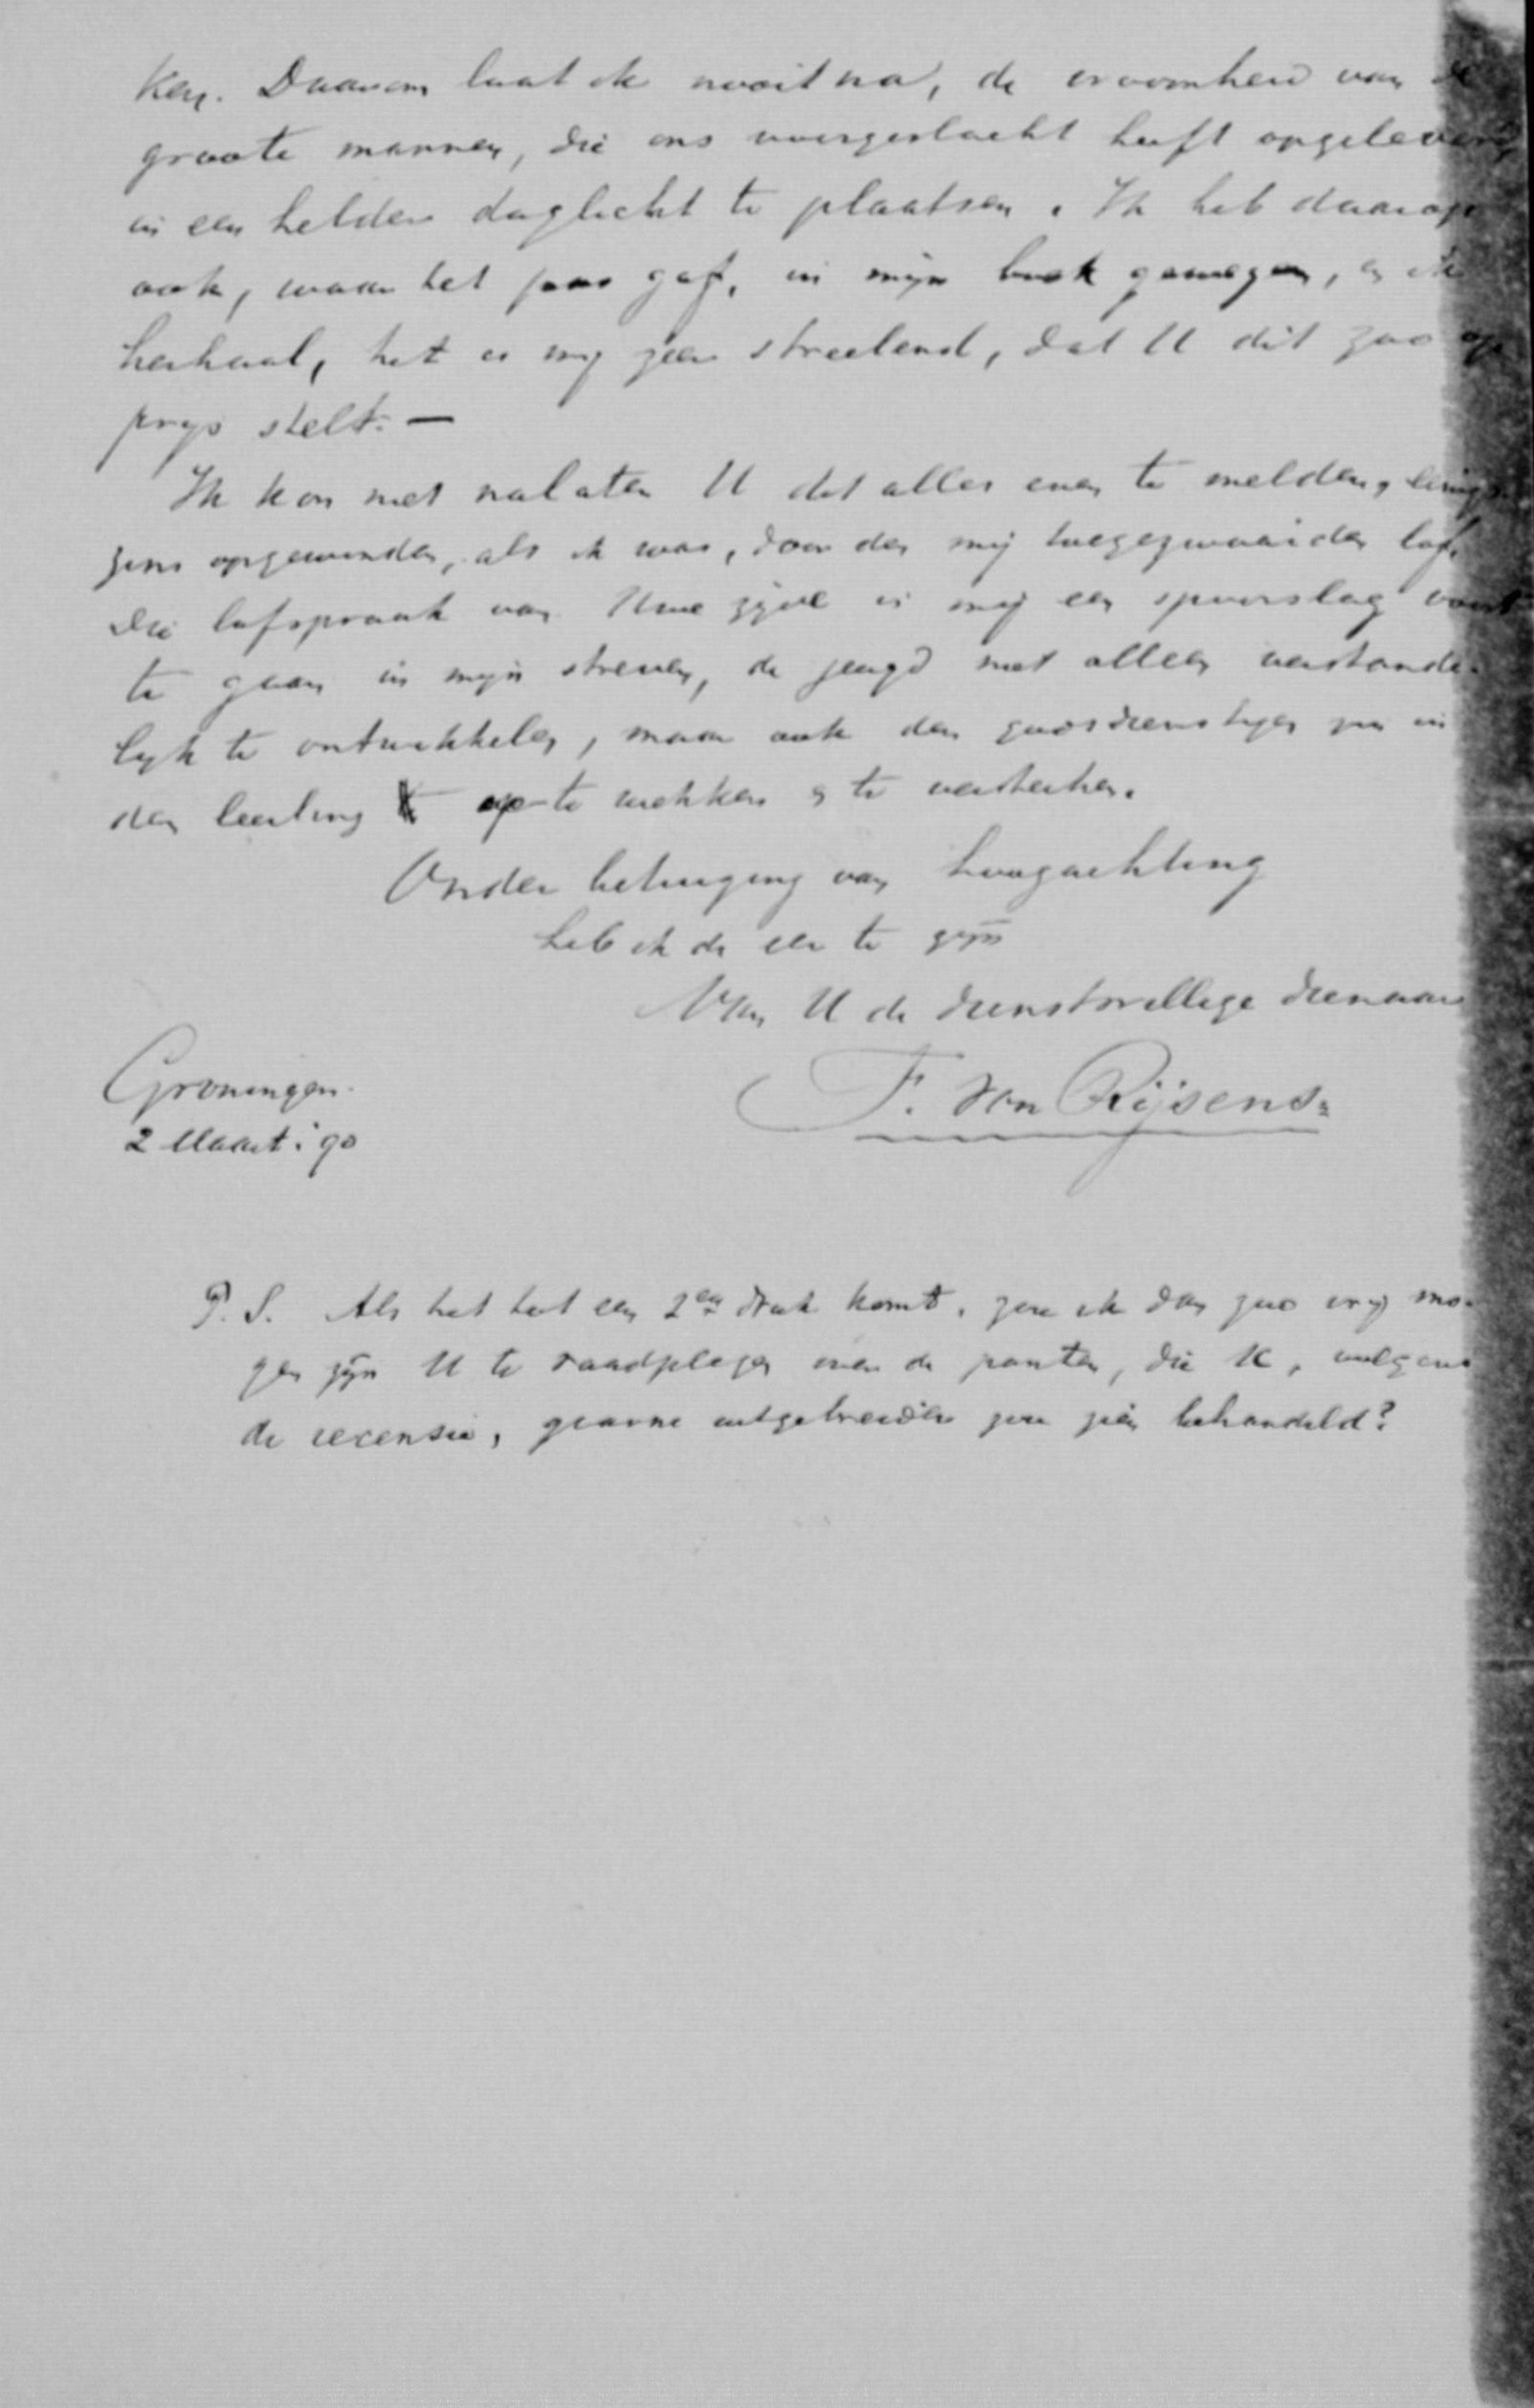 ken. Daarom laat ik nooit na, de vroomheid van de
groote mannen, die ons voorgeslacht heeft opgeleverd,
in een helder daglicht te plaatsen. Ik heb daarop
ook, waar het pas gaf, in mijn boek gewezen, en ik
herhaal, het is mij zeer streelend, dat U dit zoo op
prijs stelt. —
Ik kon niet nalaten U dit alles even te melden, eenigs
zins opgewonden, als ik was, door den mij toegezwaaiden lof.
Die lofspraak van Uwe zijde is mij een spoorslag voort
te gaan in mijn streven, de jeugd niet alleen verstande-
lijk te ontwikkelen, maar ook den godsdienstigen zin in
den leerling op te wekken en te versterken.
Onder betuiging van hoogachting
heb ik de eer te zijn
Van U de dienstwillige dienaar
F. van Rijsens.
Groningen
2 Maart '90
P. S. Als het tot een 2en druk komt, zou ik dan zoo vrij mo-
gen zijn U te raadplegen over de punten, die U, volgens
de recensie, gaarne uitgebreider zou zien behandeld?